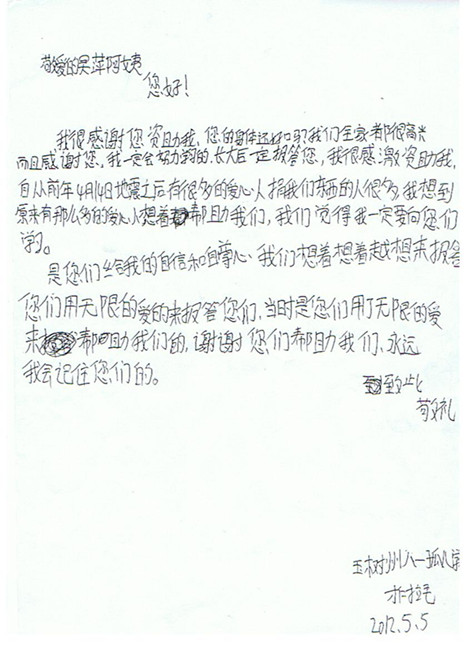 敬爱的吴萍阿姨
您好！
我很感谢您资助我、您的身体还好吗？我们全家都很高兴
而且感谢您。我一定会努力学的。长大后一定报答您，我很感激资助我，
自从前年4月14日地震之后有很多的爱心人捐我们东西的人很多，我想到
原来有那么多的爱心人想着帮助我们，我们觉得我一定要向您们
学的。
是您们给我的自信和自尊心、我们想着想着越想来报答
您们用无限的爱的来报答您们，当时是您们用了无限的爱
来帮助我们的，谢谢您们帮助我们、永远
我会记住您们的。
致此
敬礼
玉树州八一孤儿学
才仁拉毛
2012.5.5